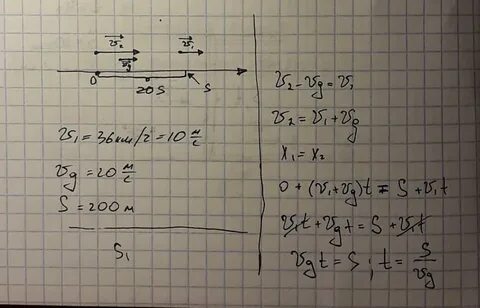 v₂ v₁
v_g
0 20S S
v₁ = 36 км/г = 10 м/с
v_g = 20 м/с
S = 200 м
S₁
v₂ - v_g = v₁
v₂ = v₁ + v_g
x₁ = x₂
0 + (v₁ + v_g)t = S + v₁t
v₁t + v_gt = S + v₁t
v_gt = S ; t = S/v_g